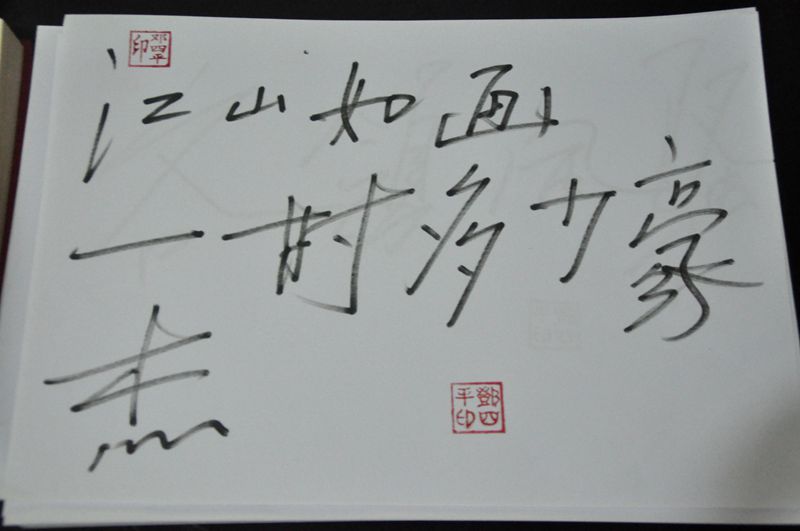 邓四平印
江山如画
一时多少豪
杰
鄧四平印